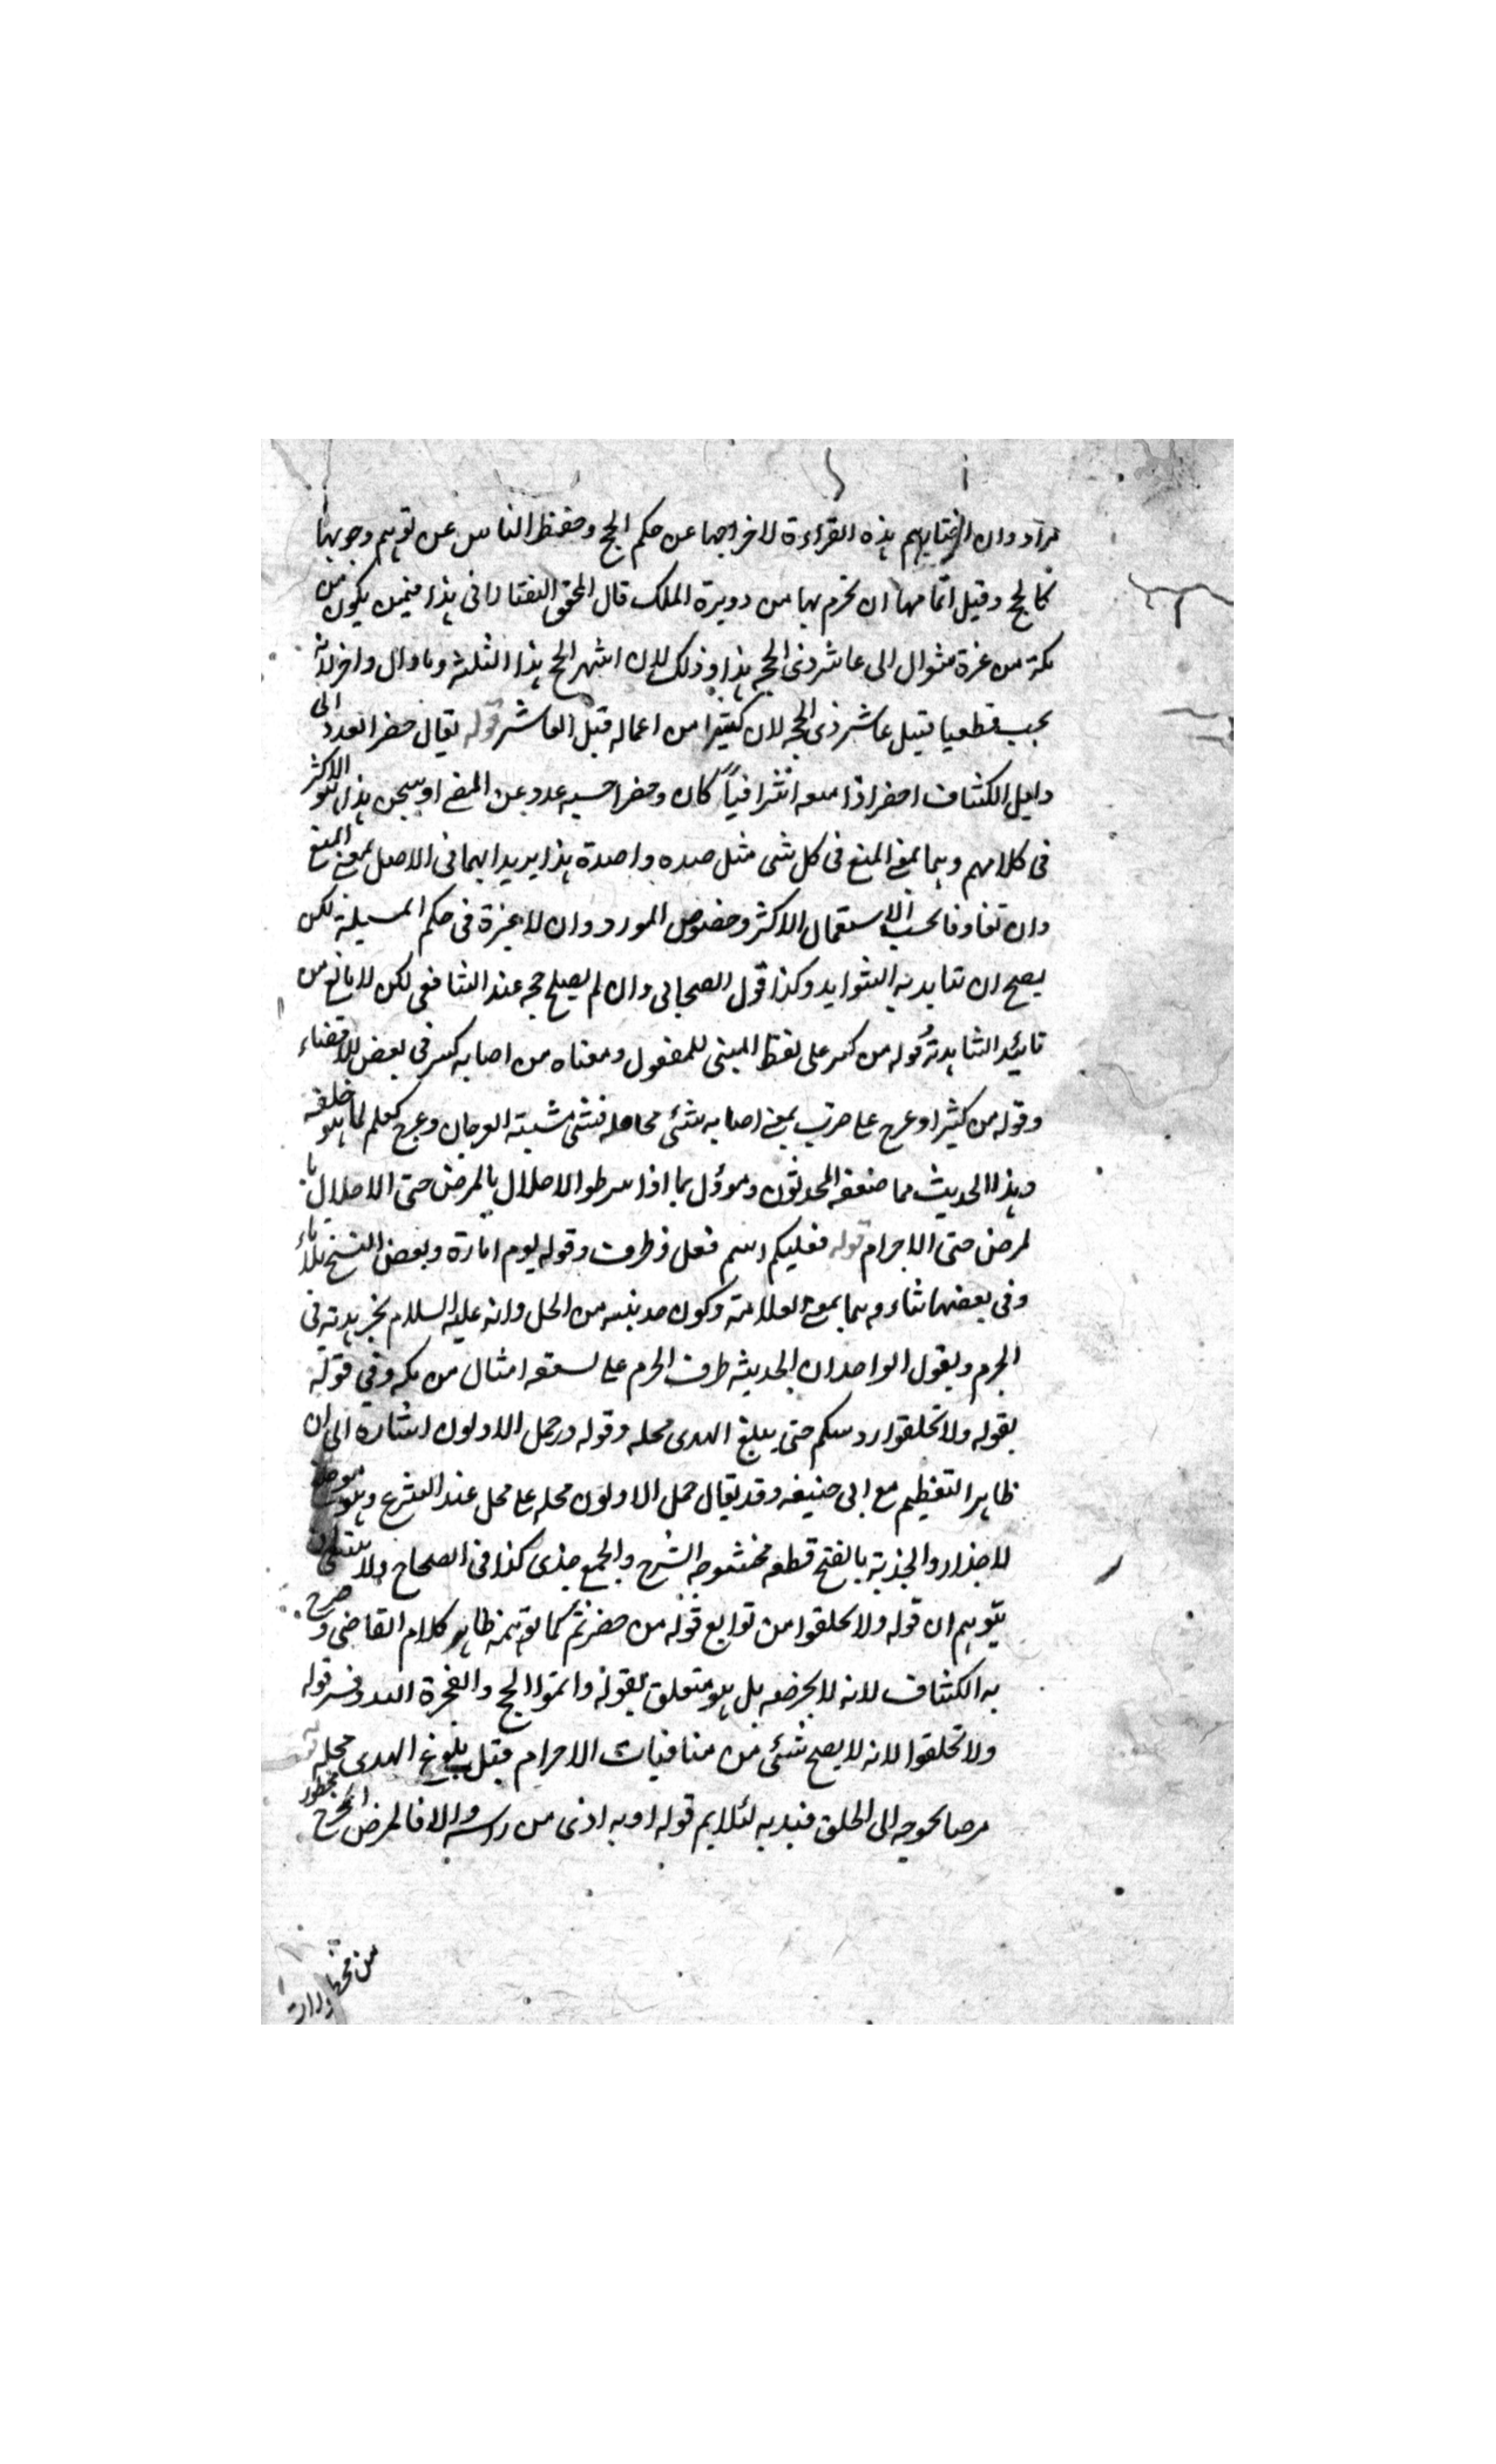 مراد وان اختيارهم هذه القراءة لاخراجها عن حكم الحج وحفظ الناس عن توهم وجوبها
كالحج وقيل اتمامهما ان تحرم بهما من دويرة الملك قال المحقق التفتازانى هذا فيمن يكون من
مكة من غرة شوال الى عاشر ذى الحجه هذا وذلك لان اشهر الحج هذا الثلثه وماوال واخر لانه
يجب قطعها قبيل عاشر ذى الحجه لان كثيرا من اعماله قبل العاشر قوله يقال حصر العدو الى
دليل الكشاف احصر اذا منعه كان وحصر احسبه عدو عن المضى او سجن هذا هو الاكثر
فى كلامهم وهما بمعنى المنع فى كل شى مثل صده واصده هذا يريد انهما فى الاصل بمعنى المنع
وان تفاوتا بحسب الاستعمال الاكثر وخصوص المورد وان لا عبرة فى حكم المسيلة لكن
يصح ان تتايد به الشواهد وكذا قول الصحابى وان لم يصلح حجه عند الشافعى لكن لا مانع من
تائيد الشاهد به قوله من كسر على لفظ المبنى للمفعول ومعناه من اصابه كسر فى بعض الاعضاء
وقوله من كثيرا وعرج على ضرب بمعنى اصابه شئ فى محاهله فمشى مشية العرجان وعرج كعلم لما هو خلقه
وهذا الحديث مما ضعفه المحدثون ومؤول بما اذا شرطوا الاحلال بالمرض حتى الاحلال با
لمرض حتى الاحرام قوله فعليكم اسم فعل وظرف وقوله يوم امارة وبعض النسخ بلا تاء
وفى بعضها بتاء وهما بمعنى العلامة وكون حديبيه من الحل وانه عليه السلام نحر هديه فى
الحرم ويقول الواحد ان الحديثيه طرف الحرم على تسعة اميال من مكه وفى قوله
بقوله ولا تحلقوا رءوسكم حتى يبلغ الهدى محله وقوله وحمل الاولون اشارة الى ان
ظاهر التعظيم مع ابى حنيفه وقد يقال حمل الاولون محله على محل عند الشرع وهو موضع
للاحذار والجذية بالفتح قطعه محشوة السرج والجمع جذى كذا فى الصحاح ولا ينبغى ان
يتوهم ان قوله ولا تحلقوا من توابع قوله من حصرتم كما توهمه ظاهر كلام القاضى وصرح
به الكشاف لانه لا يحرضه بل هو متعلق بقوله واتموا الحج والعمرة لله وفسر قوله
ولا تحلقوا لانه لا يصح شئ من منافيات الاحرام قبل بلوغ الهدى محله قوله
مرضا يحوجه الى الحلق قيد به لئلا يم قوله او به اذى من راسه والا فالمرض المحوج
من محظورات